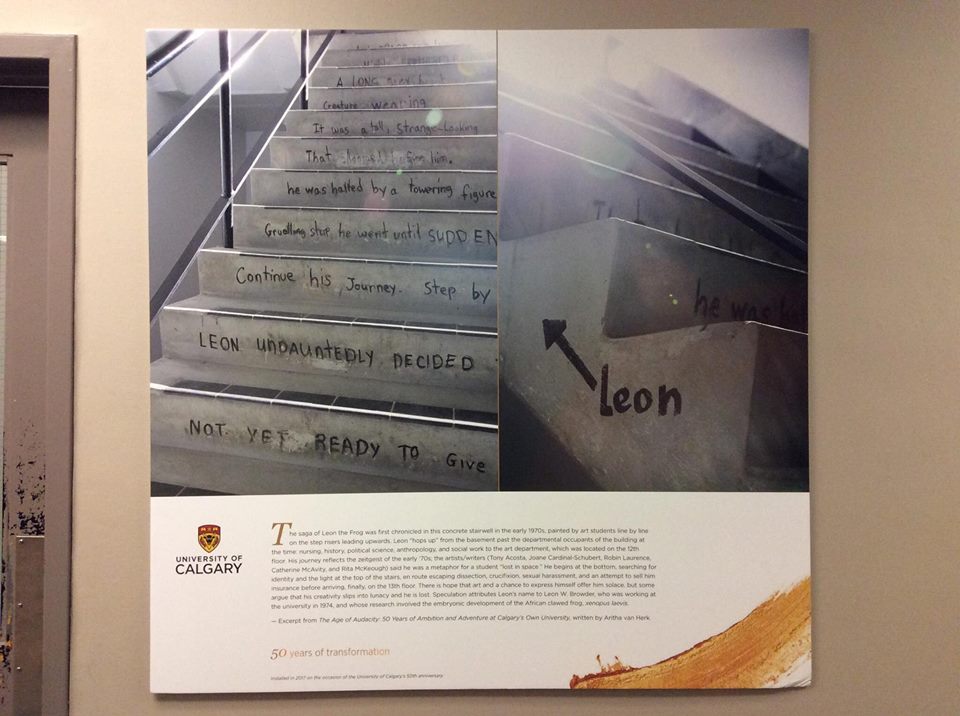 A LONG
Creature wearing
It was a tall, Strange-Looking
That stopped before him.
he was halted by a towering figure
Gruelling step he went until SUDDEN
Continue his Journey. Step by
LEON UNDAUNTEDLY DECIDED
NOT YET READY TO Give
he was hal
Leon
UNIVERSITY OF
CALGARY
The saga of Leon the Frog was first chronicled in this concrete stairwell in the early 1970s, painted by art students line by line
on the step risers leading upwards. Leon "hops up" from the basement past the departmental occupants of the building at
the time: nursing, history, political science, anthropology, and social work to the art department, which was located on the 12th
floor. His journey reflects the zeitgeist of the early '70s; the artists/writers (Tony Acosta, Joane Cardinal-Schubert, Robin Laurence,
Catherine McAvity, and Rita McKeough) said he was a metaphor for a student "lost in space." He begins at the bottom, searching for
identity and the light at the top of the stairs, en route escaping dissection, crucifixion, sexual harassment, and an attempt to sell him
insurance before arriving, finally, on the 13th floor. There is hope that art and a chance to express himself offer him solace, but some
argue that his creativity slips into lunacy and he is lost. Speculation attributes Leon's name to Leon W. Browder, who was working at
the university in 1974, and whose research involved the embryonic development of the African clawed frog, xenopus laevis.
— Excerpt from The Age of Audacity: 50 Years of Ambition and Adventure at Calgary's Own University, written by Aritha van Herk
50 years of transformation
Installed in 2017 on the occasion of the University of Calgary's 50th anniversary